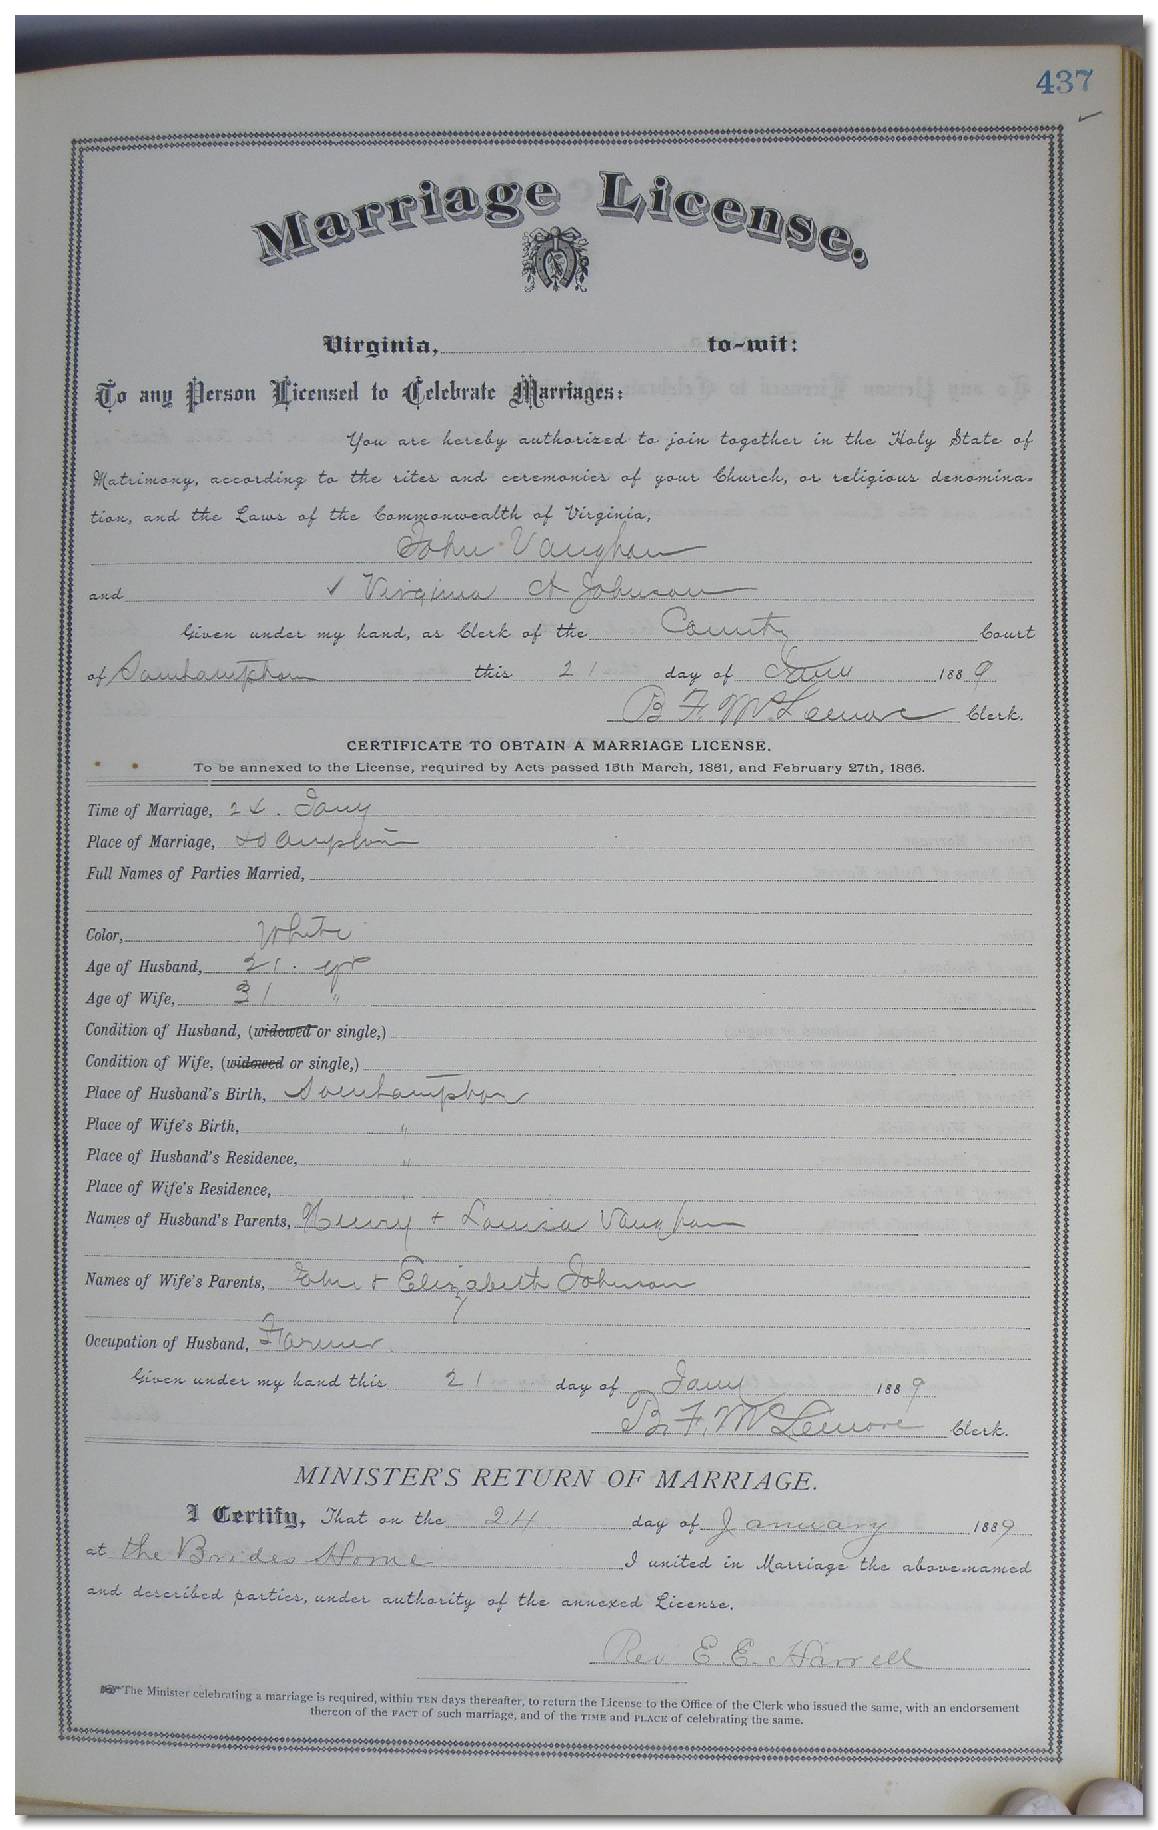 437
Marriage License.
Virginia, to-wit:
To any Person Licensed to Celebrate Marriages:
You are hereby authorized to join together in the Holy State of
Matrimony, according to the rites and ceremonies of your Church, or religious denomina-
tion, and the Laws of the Commonwealth of Virginia,
John Vaughan
and ✓ Virginia A Johnson
Given under my hand, as Clerk of the County Court
of Southampton this 21 day of Jany 1889
B. F. McLemore Clerk.
CERTIFICATE TO OBTAIN A MARRIAGE LICENSE.
To be annexed to the License, required by Acts passed 15th March, 1861, and February 27th, 1866.
Time of Marriage, 24. Jany
Place of Marriage, So ampton
Full Names of Parties Married,
Color, White
Age of Husband, 21. yrs
Age of Wife, 31 "
Condition of Husband, (widowed or single,)
Condition of Wife, (widowed or single,)
Place of Husband's Birth, Southampton
Place of Wife's Birth, "
Place of Husband's Residence, "
Place of Wife's Residence, "
Names of Husband's Parents, Henry + Louisa Vaughan
Names of Wife's Parents, + Elizabeth Johnson
Occupation of Husband, Farmer.
Given under my hand this 21 day of Jany 1889
B. F. McLemore Clerk.
MINISTER'S RETURN OF MARRIAGE.
I Certify, That on the 24 day of January 1889
at the Brides Home I united in Marriage the above-named
and described parties, under authority of the annexed License.
Rev E. E. Harrell
The Minister celebrating a marriage is required, within TEN days thereafter, to return the License to the Office of the Clerk who issued the same, with an endorsement
thereon of the FACT of such marriage, and of the TIME and PLACE of celebrating the same.